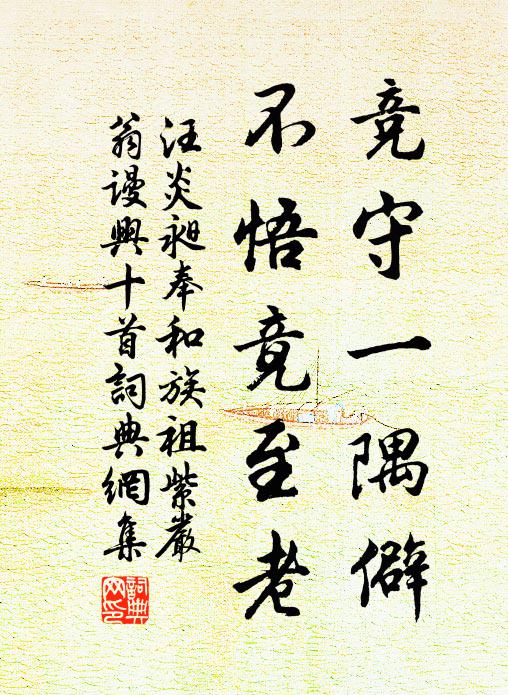 竞守一隅僻
不悟竟至老
汪炎昶奉和族祖紫巖
翁谩興十首詞典網集
詞典
网印